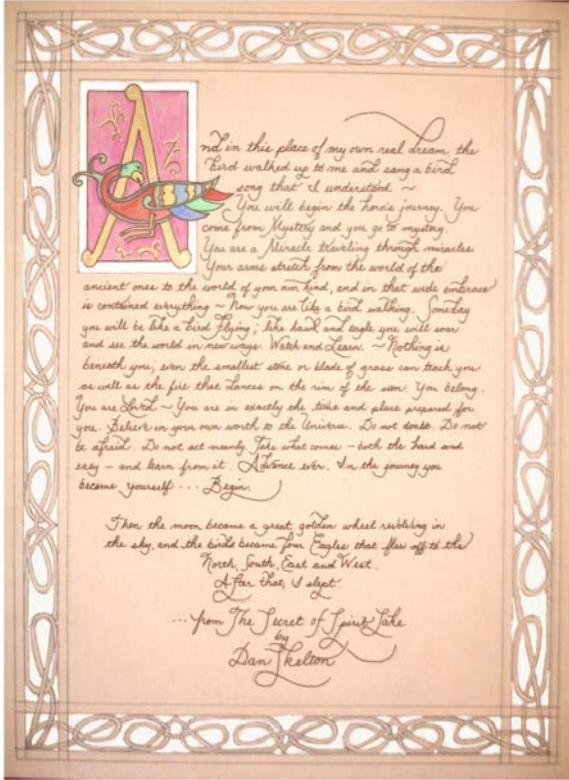 And in this place of my own real dream the
bird walked up to me and sang a bird
song that I understood ~
You will begin the hero's journey. You
come from Mystery and you go to mystery.
You are a Miracle traveling through miracles.
Your arms stretch from the world of the
ancient ones to the world of your own kind, and in that wide embrace
is contained everything ~ Now you are like a bird walking. Someday
you will be like a bird flying; like hawk and eagle you will soar
and see the world in new ways. Watch and Learn. ~ Nothing is
beneath you, even the smallest stone or blade of grass can teach you
as well as the fire that dances on the rim of the sun. You belong.
You are Loved ~ You are in exactly the time and place prepared for
you. Believe in your own worth to the Universe. Do not doubt. Do not
be afraid. Do not act meanly. Take what comes – both the hard and
easy – and learn from it. Advance ever. In the journey you
become yourself ... Begin.
Then the moon became a great golden wheel revolving in
the sky, and the birds became four Eagles that flew off to the
North, South, East and West.
After that, I slept.
... from The Secret of Spirit Lake
by
Dan Skelton